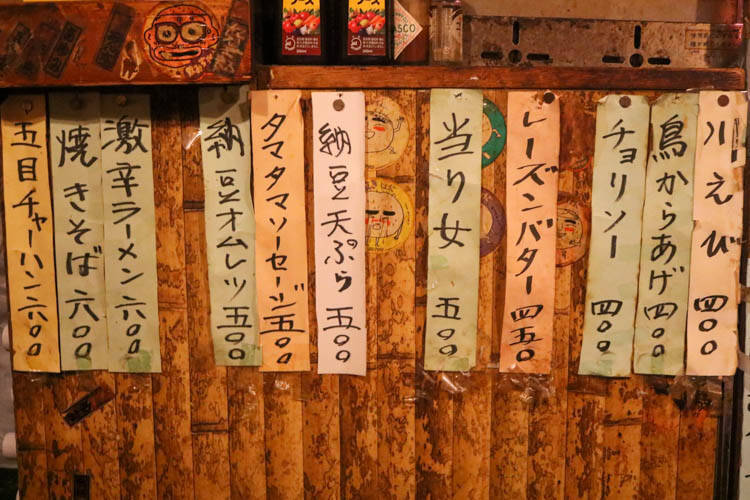 川えび 四〇〇
鳥からあげ 四〇〇
チョリソー 四〇〇
レーズンバター 四五〇
当り女 五〇〇
納豆天ぷら 五〇〇
タマタマソーセージ 五〇〇
納豆オムレツ 五〇〇
激辛ラーメン 六〇〇
焼きそば 六〇〇
五目チャーハン 六〇〇
ソース